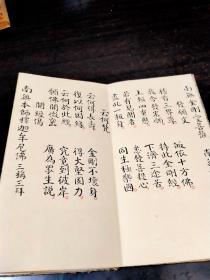 南無金剛
發願文
稽首三界尊 皈依十方佛
我今發宏願 持此金剛經
上報四重恩 下濟三途苦
若有見聞者 悉發菩提心
盡此一報身 同生極樂國
云何梵
云何得長壽 金剛不壞身
復以何因緣 得大堅固力
云何於此經 究竟到彼岸
願佛開微密 廣為眾生說
開經偈
南無本師釋迦牟尼佛 三稱三拜